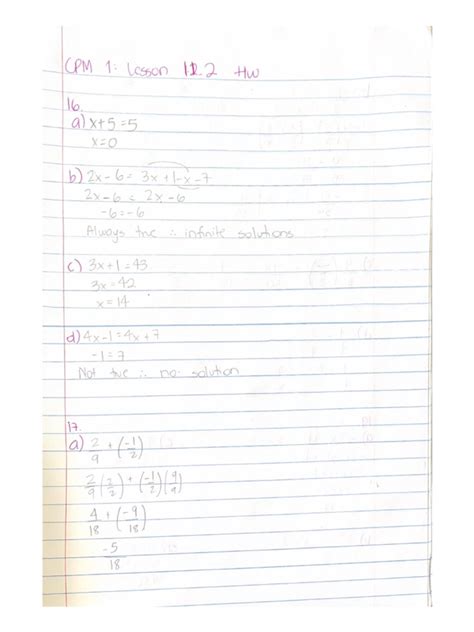 CPM 1: Lesson 11.2 HW
16.
a) x+5=5
x=0
b) 2x-6= 3x+1-x-7
2x-6= 2x-6
-6=-6
Always true ∴ infinite solutions
c) 3x+1=43
3x=42
x=14
d) 4x-1=4x+7
-1=7
Not true ∴ no solution
17.
a) 2/9 + (-1/2)
2/9 (2/2) + (-1/2)(9/9)
4/18 + (-9/18)
-5/18